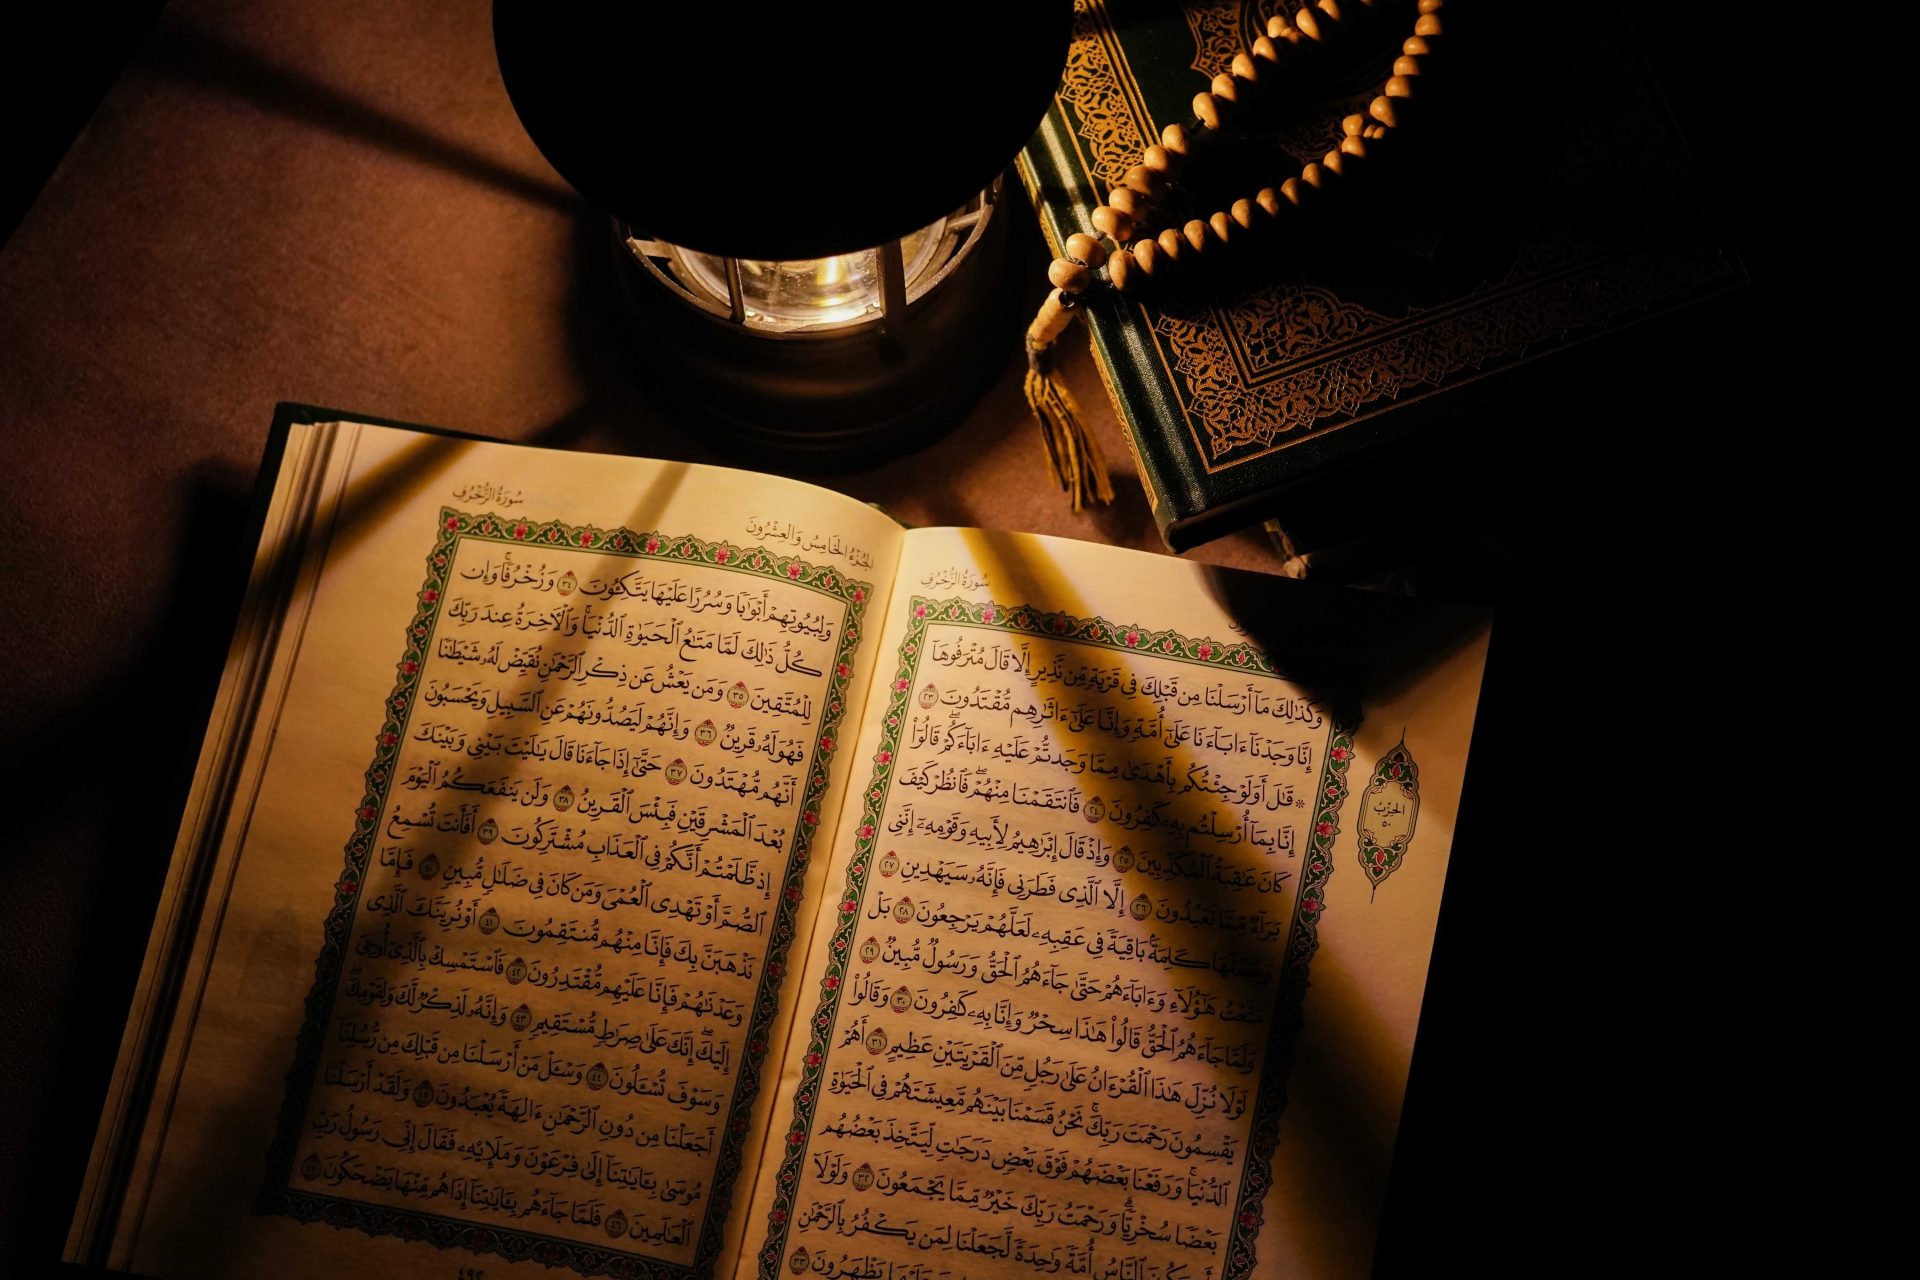 سُورَةُ الزُّخْرُفِ
وَكَذَٰلِكَ مَآ أَرْسَلْنَا مِن قَبْلِكَ فِى قَرْيَةٍ مِّن نَّذِيرٍ إِلَّا قَالَ مُتْرَفُوهَآ
إِنَّا وَجَدْنَآ ءَابَآءَنَا عَلَىٰٓ أُمَّةٍ وَإِنَّا عَلَىٰٓ ءَاثَٰرِهِم مُّقْتَدُونَ ٢٣
۞ قَٰلَ أَوَلَوْ جِئْتُكُم بِأَهْدَىٰ مِمَّا وَجَدتُّمْ عَلَيْهِ ءَابَآءَكُمْ ۖ قَالُوٓا۟
إِنَّا بِمَآ أُرْسِلْتُم بِهِۦ كَٰفِرُونَ ٢٤ فَٱنتَقَمْنَا مِنْهُمْ ۖ فَٱنظُرْ كَيْفَ
كَانَ عَٰقِبَةُ ٱلْمُكَذِّبِينَ ٢٥ وَإِذْ قَالَ إِبْرَٰهِيمُ لِأَبِيهِ وَقَوْمِهِۦٓ إِنَّنِى
بَرَآءٌ مِّمَّا تَعْبُدُونَ ٢٦ إِلَّا ٱلَّذِى فَطَرَنِى فَإِنَّهُۥ سَيَهْدِينِ ٢٧
وَجَعَلَهَا كَلِمَةًۢ بَاقِيَةً فِى عَقِبِهِۦ لَعَلَّهُمْ يَرْجِعُونَ ٢٨ بَلْ
مَتَّعْتُ هَٰٓؤُلَآءِ وَءَابَآءَهُمْ حَتَّىٰ جَآءَهُمُ ٱلْحَقُّ وَرَسُولٌ مُّبِينٌ ٢٩
وَلَمَّا جَآءَهُمُ ٱلْحَقُّ قَالُوا۟ هَٰذَا سِحْرٌ وَإِنَّا بِهِۦ كَٰفِرُونَ ٣٠ وَقَالُوا۟
لَوْلَا نُزِّلَ هَٰذَا ٱلْقُرْءَانُ عَلَىٰ رَجُلٍ مِّنَ ٱلْقَرْيَتَيْنِ عَظِيمٍ ٣١ أَهُمْ
يَقْسِمُونَ رَحْمَتَ رَبِّكَ ۚ نَحْنُ قَسَمْنَا بَيْنَهُم مَّعِيشَتَهُمْ فِى ٱلْحَيَوٰةِ
ٱلدُّنْيَا ۚ وَرَفَعْنَا بَعْضَهُمْ فَوْقَ بَعْضٍ دَرَجَٰتٍ لِّيَتَّخِذَ بَعْضُهُم
بَعْضًا سُخْرِيًّا ۗ وَرَحْمَتُ رَبِّكَ خَيْرٌ مِّمَّا يَجْمَعُونَ ٣٢ وَلَوْلَآ
أَن يَكُونَ ٱلنَّاسُ أُمَّةً وَٰحِدَةً لَّجَعَلْنَا لِمَن يَكْفُرُ بِٱلرَّحْمَٰنِ
عَلَيْهَا يَظْهَرُونَ ٣٣
الحِزْبُ
٥٠
الجُزْءُ الخَامِسُ وَالعِشْرُونَ
سُورَةُ الزُّخْرُفِ
وَلِبُيُوتِهِمْ أَبْوَٰبًا وَسُرُرًا عَلَيْهَا يَتَّكِـُٔونَ ٣٤ وَزُخْرُفًا ۚ وَإِن
كُلُّ ذَٰلِكَ لَمَّا مَتَٰعُ ٱلْحَيَوٰةِ ٱلدُّنْيَا ۚ وَٱلْءَاخِرَةُ عِندَ رَبِّكَ
لِلْمُتَّقِينَ ٣٥ وَمَن يَعْشُ عَن ذِكْرِ ٱلرَّحْمَٰنِ نُقَيِّضْ لَهُۥ شَيْطَٰنًا
فَهُوَ لَهُۥ قَرِينٌ ٣٦ وَإِنَّهُمْ لَيَصُدُّونَهُمْ عَنِ ٱلسَّبِيلِ وَيَحْسَبُونَ
أَنَّهُم مُّهْتَدُونَ ٣٧ حَتَّىٰٓ إِذَا جَآءَنَا قَالَ يَٰلَيْتَ بَيْنِى وَبَيْنَكَ
بُعْدَ ٱلْمَشْرِقَيْنِ فَبِئْسَ ٱلْقَرِينُ ٣٨ وَلَن يَنفَعَكُمُ ٱلْيَوْمَ
إِذ ظَّلَمْتُمْ أَنَّكُمْ فِى ٱلْعَذَابِ مُشْتَرِكُونَ ٣٩ أَفَأَنتَ تُسْمِعُ
ٱلصُّمَّ أَوْ تَهْدِى ٱلْعُمْىَ وَمَن كَانَ فِى ضَلَٰلٍ مُّبِينٍ ٤٠ فَإِمَّا
نَذْهَبَنَّ بِكَ فَإِنَّا مِنْهُم مُّنتَقِمُونَ ٤١ أَوْ نُرِيَنَّكَ ٱلَّذِى
وَعَدْنَٰهُمْ فَإِنَّا عَلَيْهِم مُّقْتَدِرُونَ ٤٢ فَٱسْتَمْسِكْ بِٱلَّذِىٓ أُوحِىَ
إِلَيْكَ ۖ إِنَّكَ عَلَىٰ صِرَٰطٍ مُّسْتَقِيمٍ ٤٣ وَإِنَّهُۥ لَذِكْرٌ لَّكَ وَلِقَوْمِكَ ۖ
وَسَوْفَ تُسْـَٔلُونَ ٤٤ وَسْـَٔلْ مَنْ أَرْسَلْنَا مِن قَبْلِكَ مِن رُّسُلِنَآ
أَجَعَلْنَا مِن دُونِ ٱلرَّحْمَٰنِ ءَالِهَةً يُعْبَدُونَ ٤٥ وَلَقَدْ أَرْسَلْنَا
مُوسَىٰ بِـَٔايَٰتِنَآ إِلَىٰ فِرْعَوْنَ وَمَلَإِي۟هِۦ فَقَالَ إِنِّى رَسُولُ رَبِّ
ٱلْعَٰلَمِينَ ٤٦ فَلَمَّا جَآءَهُم بِـَٔايَٰتِنَآ إِذَا هُم مِّنْهَا يَضْحَكُونَ ٤٧
٤٩٢